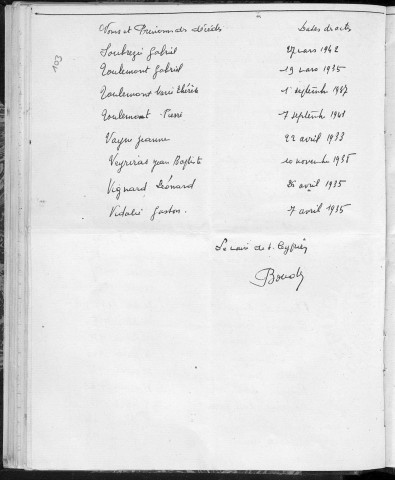 103
Noms et Prénoms des décédés Dates décès
Soubregi Gabriel 27 mars 1942
Roulemont Gabriel 19 mars 1935
Roulemont Marie Thérèse 1 septembre 1937
Roulemont Pierre 7 septembre 1941
Vayne Jeanne 22 avril 1933
Veyrieras Jean Baptiste 10 novembre 1935
Vignard Léonard 26 avril 1935
Vidalie Gaston 7 avril 1935
Le maire de St.